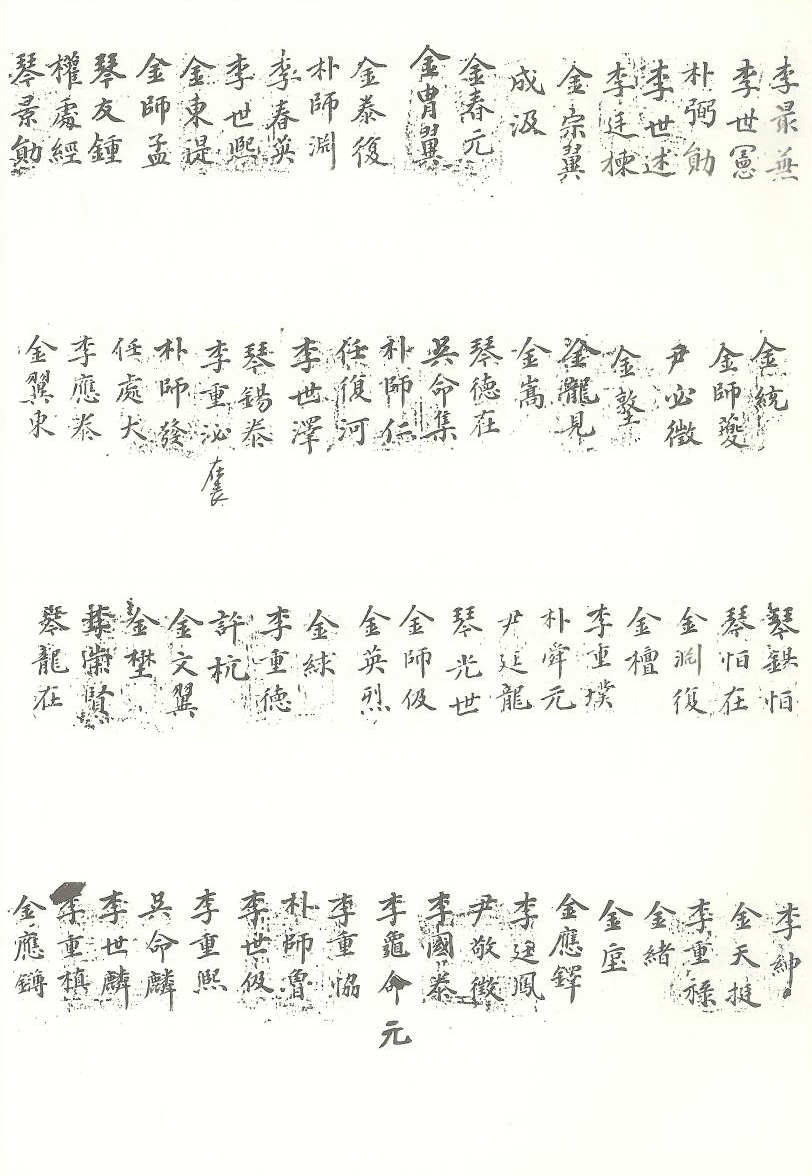 李最燕
李世憲
朴弼勛
李世述
李廷棟
金宗翼
成汲
金春元
金胄翼
金泰復
朴師淵
李春英
李世熙
金東湜
金師孟
琴友鍾
權處經
琴景勛
金統
金師夔
尹必徵
金墪
金龍見
金嵩
琴德在
吳命集
朴師仁
任復河
李世澤
琴錫泰
李重泌
朴師發
任處大
李應泰
金翼東
琴鉷怕
琴怕在
金淵復
金檀
李重璞
朴舜元
尹廷龍
琴光世
金師伋
金英烈
金絿
李重德
許杭
金文翼
金楙
崇賢
琴龍在
李紳
金天挺
李重祿
金緒
金垕
金應鐸
李廷鳳
尹敬徵
李國泰
李龜命
元
李重協
朴師曾
李世伋
李重熙
吳命麟
李世麟
李重禛
金應鏄